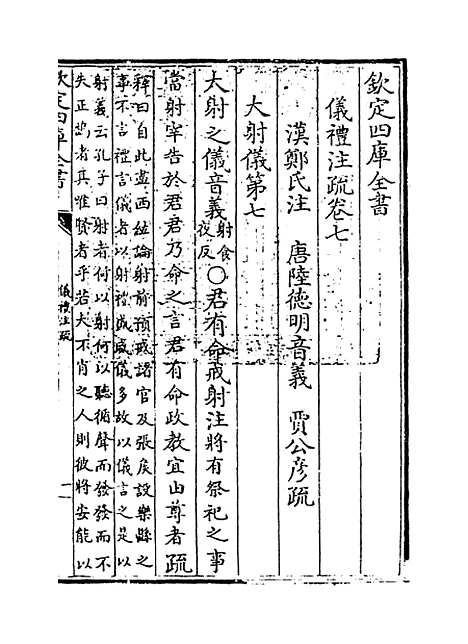 欽定四庫全書
儀禮注疏卷七
漢鄭氏注　唐陸德明音義　賈公彥疏
大射儀第七
大射之儀音義射食夜反〇君有命戒射注將有祭祀之事
當射宰告於君君乃命之言君有命政教宜由尊者疏
釋曰自此盡西紘論射前預戒諸官及張侯設樂縣之
事不言禮言儀者以射禮成威儀多故以儀言之是以
射義云孔子曰射者何以射何以聽循聲而發發而不
失正鵠者其唯賢者乎若夫不肖之人則彼將安能以
欽定四庫全書
儀禮注疏
一